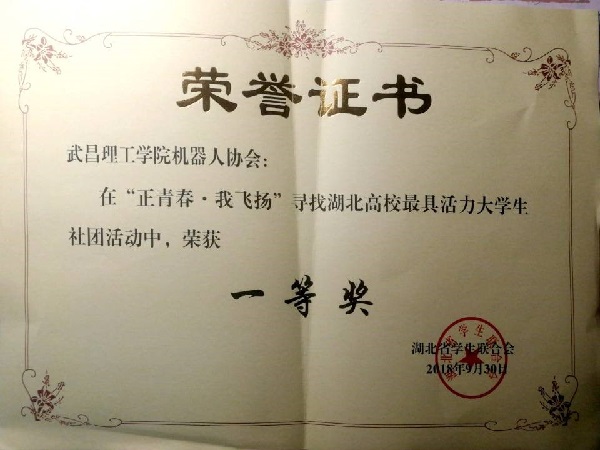 荣誉证书
武昌理工学院机器人协会：
在“正青春·我飞扬”寻找湖北高校最具活力大学生
社团活动中，荣获
一等奖
湖北省学生联合会
2018年9月30日